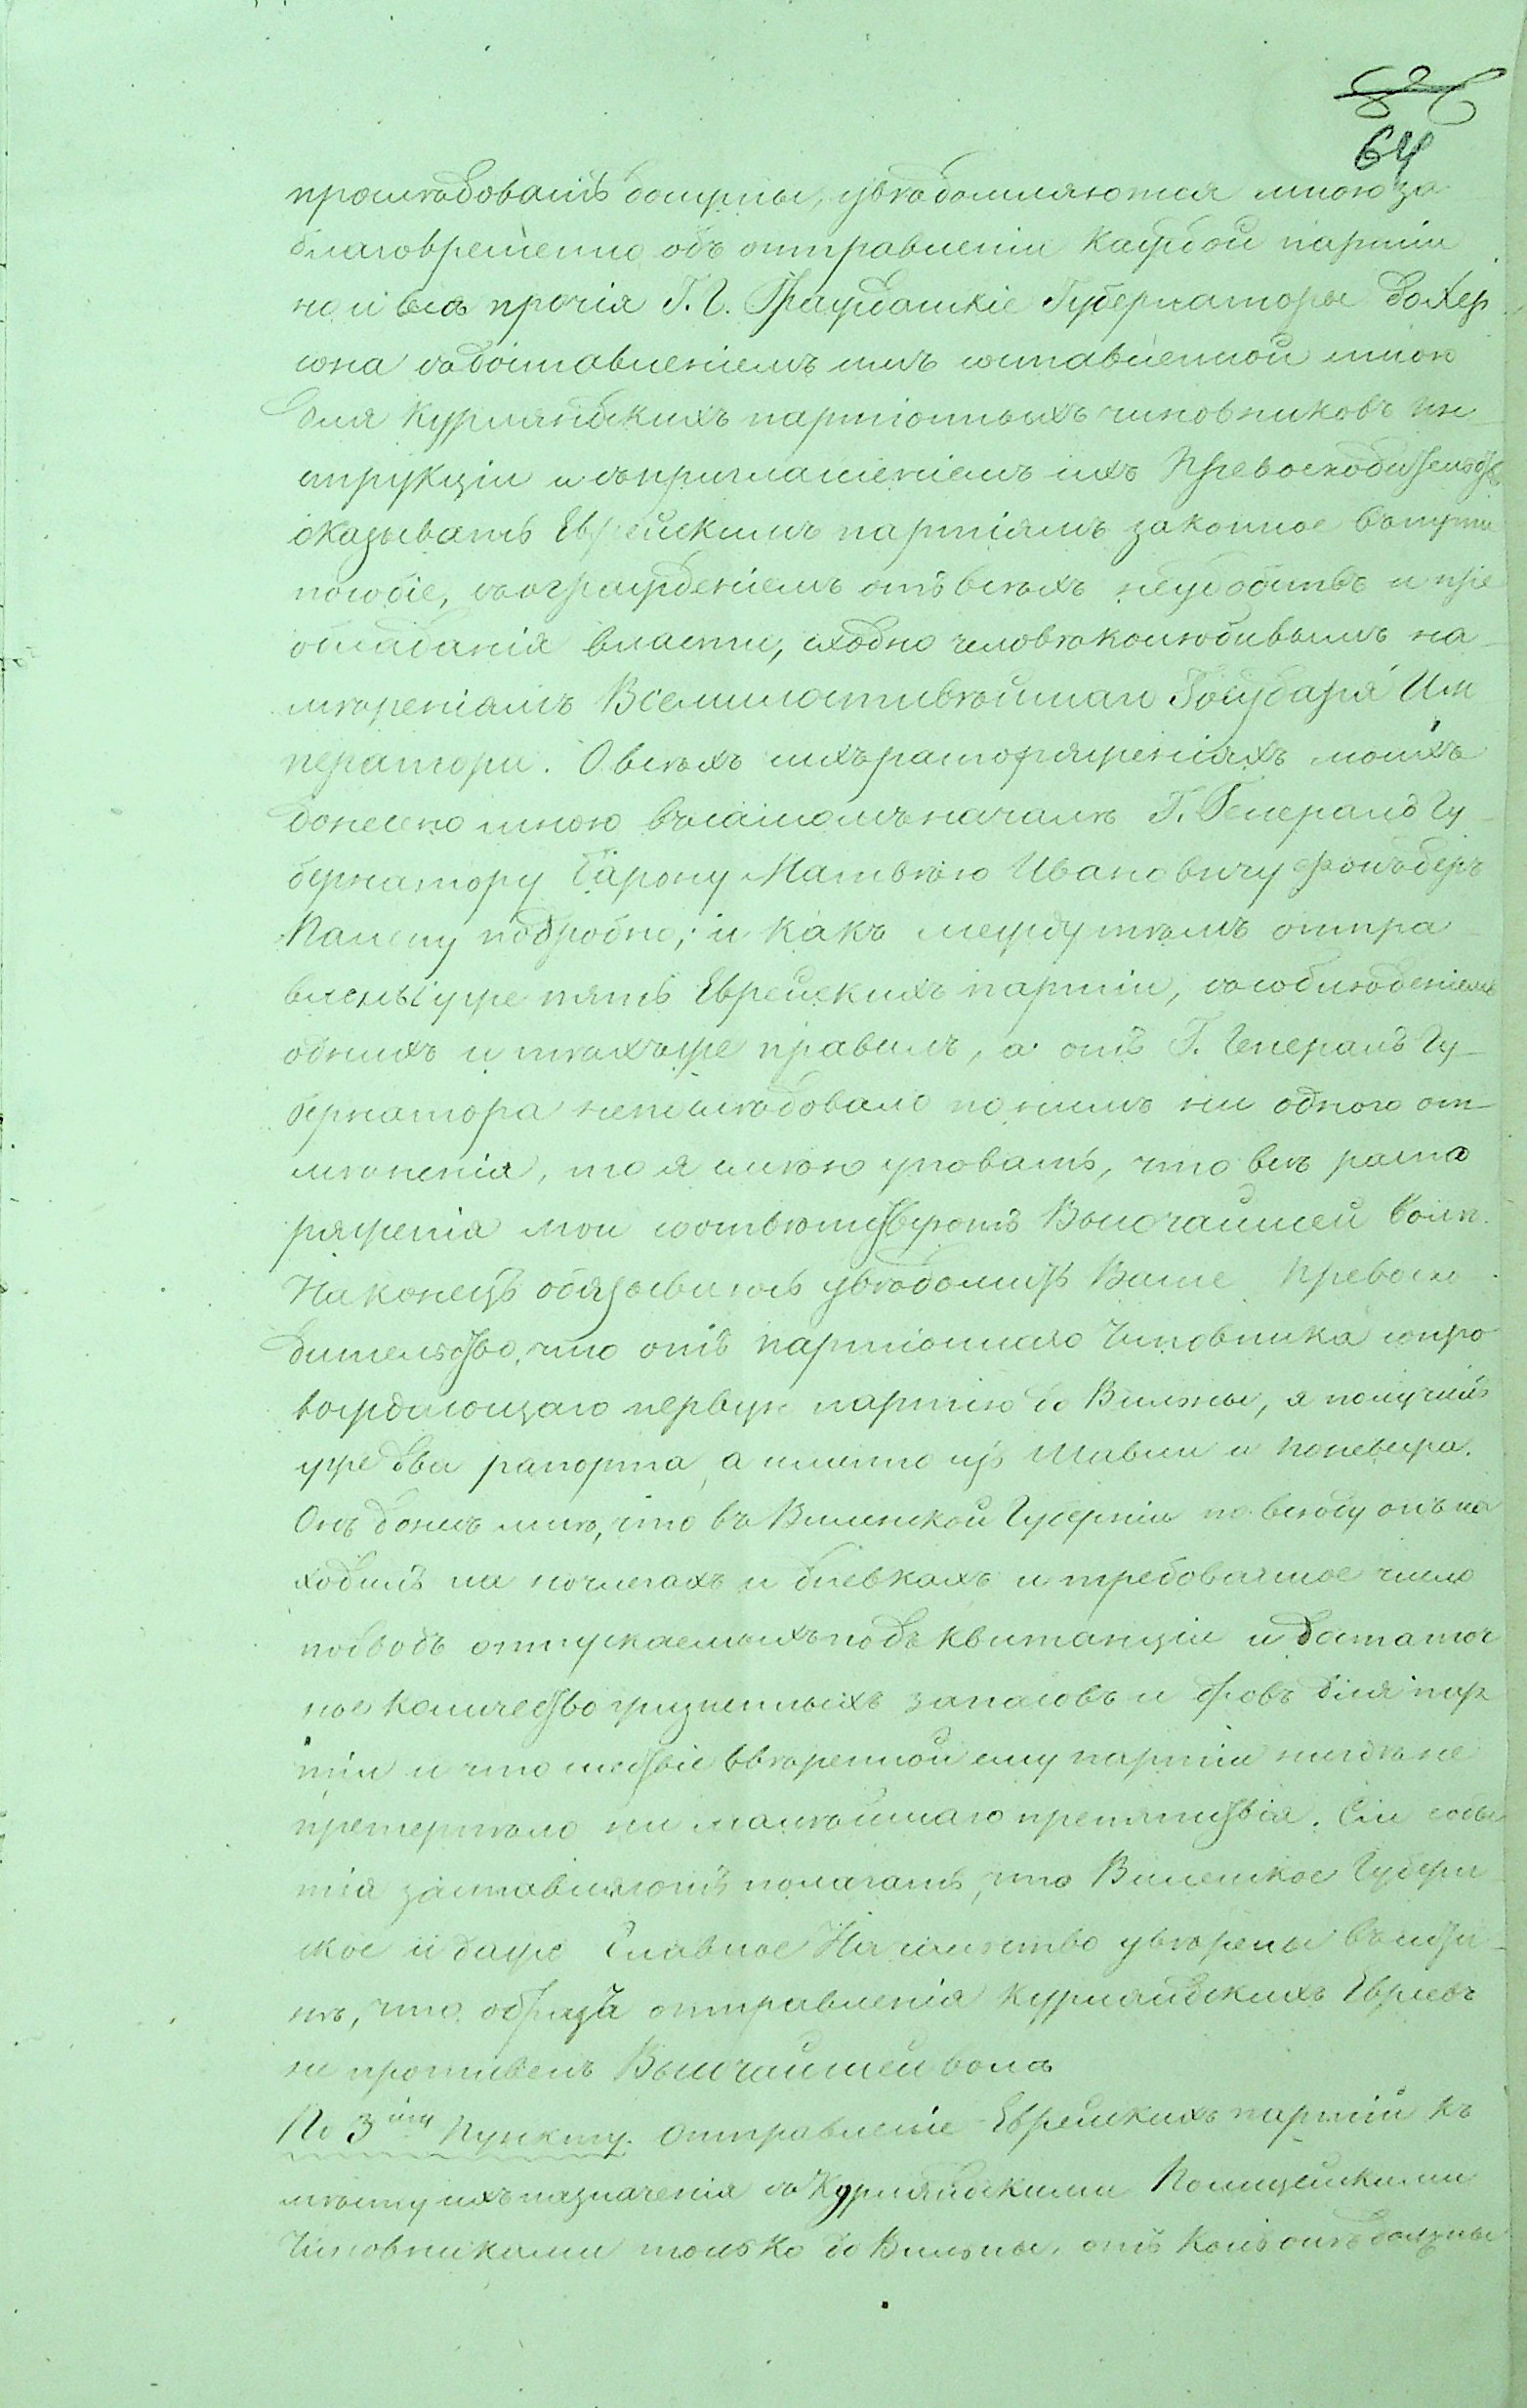 64
прослѣдовать должны, увѣдомляются мною за
благовременно объ отправленіи каждой партіи
но и всѣ прочія Г. Г. Гражданскіе Губернаторы до Хер
сона съ доставленіемъ имъ составленной мною
для Курляндскихъ партіонныхъ чиновниковъ ин
струкціи и съ приглашеніемъ ихъ Превосходительствъ
оказывать Еврейскимъ партіямъ законное въ пути
пособіе, съ огражденіемъ отъ всѣхъ неудобствъ и пре
обладанія власти, сходно человѣколюбивымъ на
мѣреніямъ Всемилостивѣйшаго Государя Им
ператора. О всѣхъ сихъ распоряженіяхъ моихъ
донесено мною въ самомъ началѣ Г. Генералъ Гу
бернатору Барону Матвѣю Ивановичу фонъ дер
Палену подробно; и какъ между тѣмъ отпра
влены уже пять Еврейскихъ партій, съ соблюденіемъ
однихъ и тѣхъ же правилъ, а отъ Г. Генералъ Гу
бернатора непослѣдовало по нимъ ни одного от
мѣненія, то я смѣю уповать, что всѣ распо
ряженія мои соотвѣтствуютъ Высочайшей волѣ.
Наконецъ обязываюсь увѣдомить Ваше Превосхо
дительство, что отъ партіоннаго Чиновника сопро
вождающаго первую партію до Вильны, я получилъ
уже два рапорта, а именно изъ Шавли и Поневежа.
Онъ донесъ мнѣ, что въ Виленской Губерніи по всюду онъ на
ходилъ на ночлегахъ и дневкахъ и требованное число
подводъ отпускаемыхъ подъ квитанціи и достаточ
ное количество жизненныхъ запасовъ и дровъ для пар
тіи и что шествіе ввѣренной ему партіи нигдѣ не
претерпѣло ни малѣйшаго препятствія. Сіи собы
тія заставляютъ полагать, что Виленское Губерн
ское и даже Главное Начальство увѣрены въ исти
нѣ, что образъ отправленія Курляндскихъ Евреевъ
не противенъ Высочайшей волѣ
По 3му Пункту. Отправленіе Еврейскихъ партій къ
мѣсту ихъ назначенія съ Курляндскими Полицейскими
Чиновниками только до Вильны, отъ коль онѣ должны